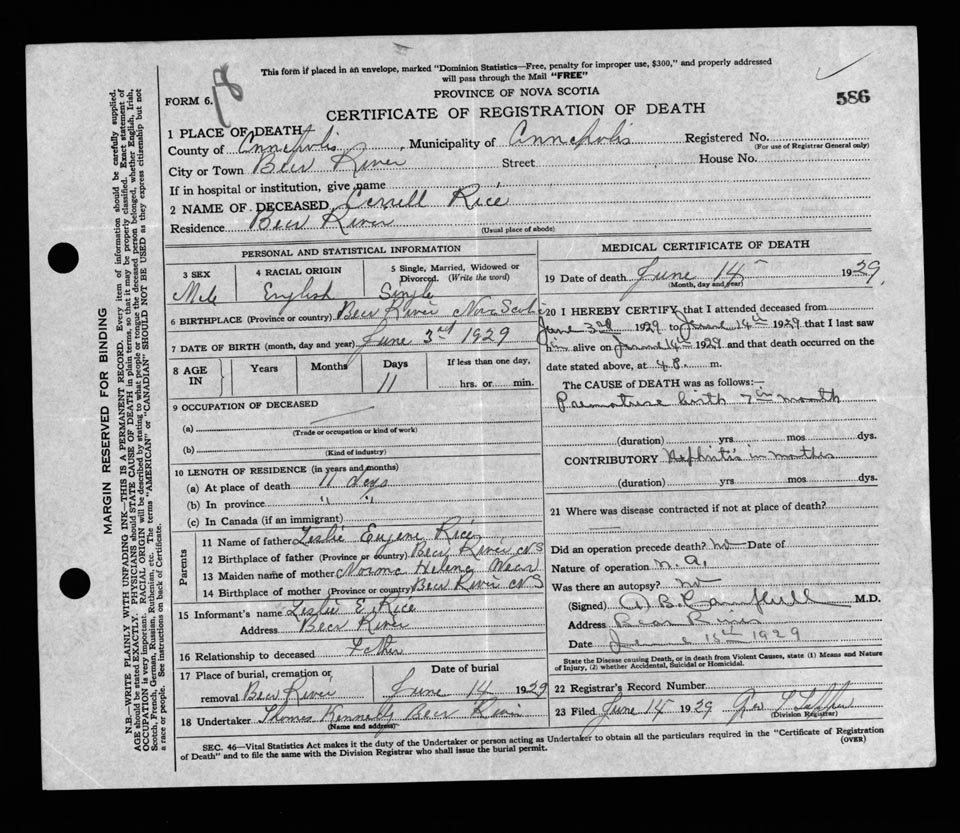 This form if placed in an envelope, marked "Dominion Statistics—Free, penalty for improper use, $300," and properly addressed
will pass through the Mail "FREE"
PROVINCE OF NOVA SCOTIA
586
FORM 6.
CERTIFICATE OF REGISTRATION OF DEATH
1 PLACE OF DEATH
County of Annapolis, Municipality of Annapolis Registered No.
(For use of Registrar General only)
City or Town Bear River Street House No.
If in hospital or institution, give name
2 NAME OF DECEASED Rice
Residence Bear River
(Usual place of abode)
PERSONAL AND STATISTICAL INFORMATION
3 SEX 4 RACIAL ORIGIN 5 Single, Married, Widowed or Divorced. (Write the word)
Male English Single
6 BIRTHPLACE (Province or country) Bear River Nova Scotia
7 DATE OF BIRTH (month, day and year) June 3rd 1929
8 AGE IN Years Months Days If less than one day,
11 hrs. or min.
9 OCCUPATION OF DECEASED
(a)
(Trade or occupation or kind of work)
(b)
(Kind of industry)
10 LENGTH OF RESIDENCE (in years and months)
(a) At place of death 11 days
(b) In province " "
(c) In Canada (if an immigrant)
Parents
11 Name of father Leslie Eugene Rice
12 Birthplace of father (Province or country) Bear River NS
13 Maiden name of mother Norma Helena
14 Birthplace of mother (Province or country) Bear River NS
15 Informant's name Leslie E. Rice
Address Bear River
16 Relationship to deceased Father
17 Place of burial, cremation or removal Bear River Date of burial June 14 1929
18 Undertaker Thomas Kennedy Bear River
(Name and address)
MEDICAL CERTIFICATE OF DEATH
19 Date of death June 14 1929
(Month, day and year)
20 I HEREBY CERTIFY that I attended deceased from
June 3rd 1929 to June 14th 1929 that I last saw
him alive on June 14 1929 and that death occurred on the
date stated above, at 4 P. m.
The CAUSE of DEATH was as follows:—
Premature birth 7th month
(duration) yrs mos dys.
CONTRIBUTORY Nephritis in mother
(duration) yrs mos dys.
21 Where was disease contracted if not at place of death?
Did an operation precede death? no Date of
Nature of operation n. a.
Was there an autopsy? no
(Signed) A. B. Campbell M.D.
Address Bear River
Date June 1929
State the Disease causing Death, or in death from Violent Causes, state (1) Means and Nature of Injury, (2) whether Accidental, Suicidal or Homicidal.
22 Registrar's Record Number
23 Filed June 14 1929
(Division Registrar)
SEC. 46—Vital Statistics Act makes it the duty of the Undertaker or person acting as Undertaker to obtain all the particulars required in the "Certificate of Registration
of Death" and to file the same with the Division Registrar who shall issue the burial permit. (OVER)
MARGIN RESERVED FOR BINDING
N.B.—WRITE PLAINLY WITH UNFADING INK—THIS IS A PERMANENT RECORD. Every item of information should be carefully supplied.
AGE should be stated EXACTLY. PHYSICIANS should STATE CAUSE OF DEATH in plain terms, so that it may be properly classified. Exact statement of
OCCUPATION is very important. RACIAL ORIGIN will be described by stating to what people or tongue the deceased person belonged, whether English, Irish,
Scotch, French, German, Russian, Ruthenian, etc. The terms "AMERICAN" or "CANADIAN" SHOULD NOT BE USED as they express citizenship but not
a race or people. See instructions on back of Certificate.